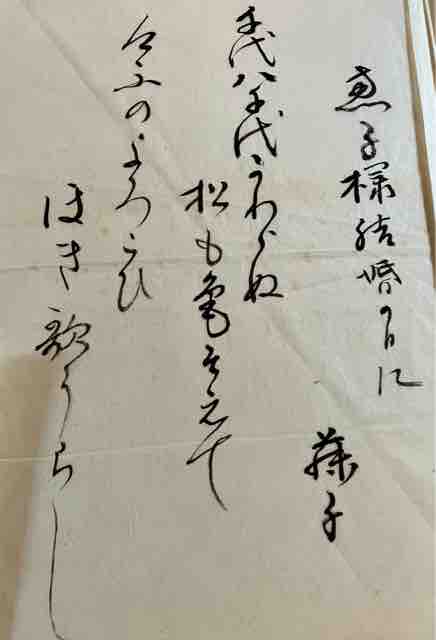 恵子様結婚の日に
藤子
千代八千代かわらぬ
松も亀そえて
けふのよろこひ
ほき歌うらし